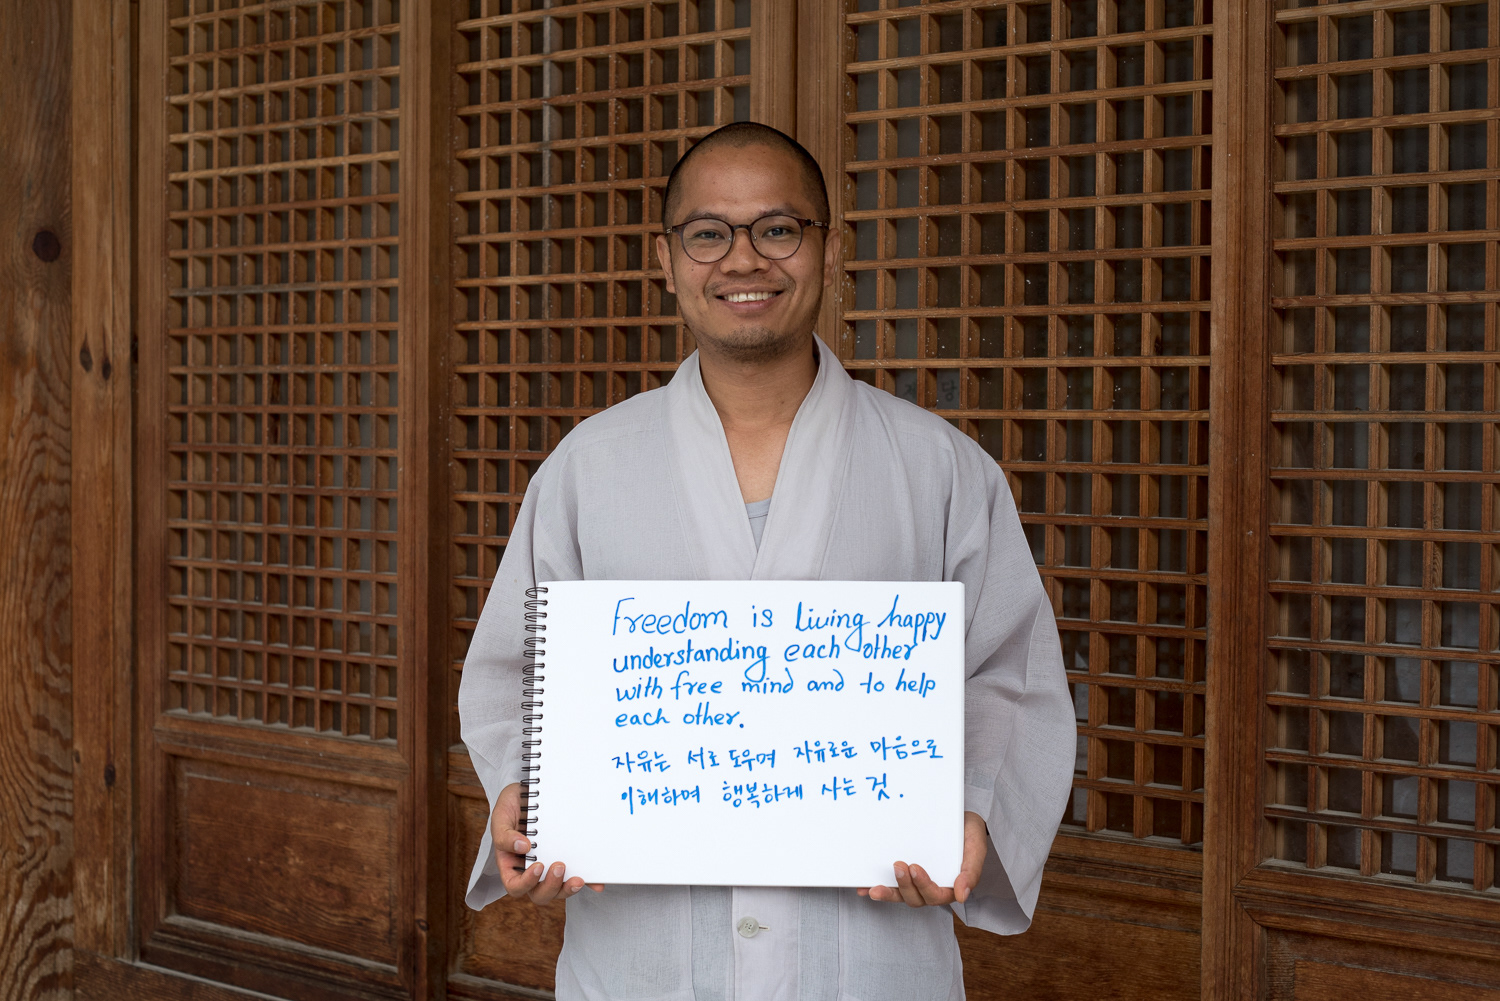 Freedom is living happy
understanding each other
with free mind and to help
each other.
자유는 서로 도우며 자유로운 마음으로
이해하며 행복하게 사는 것.
당